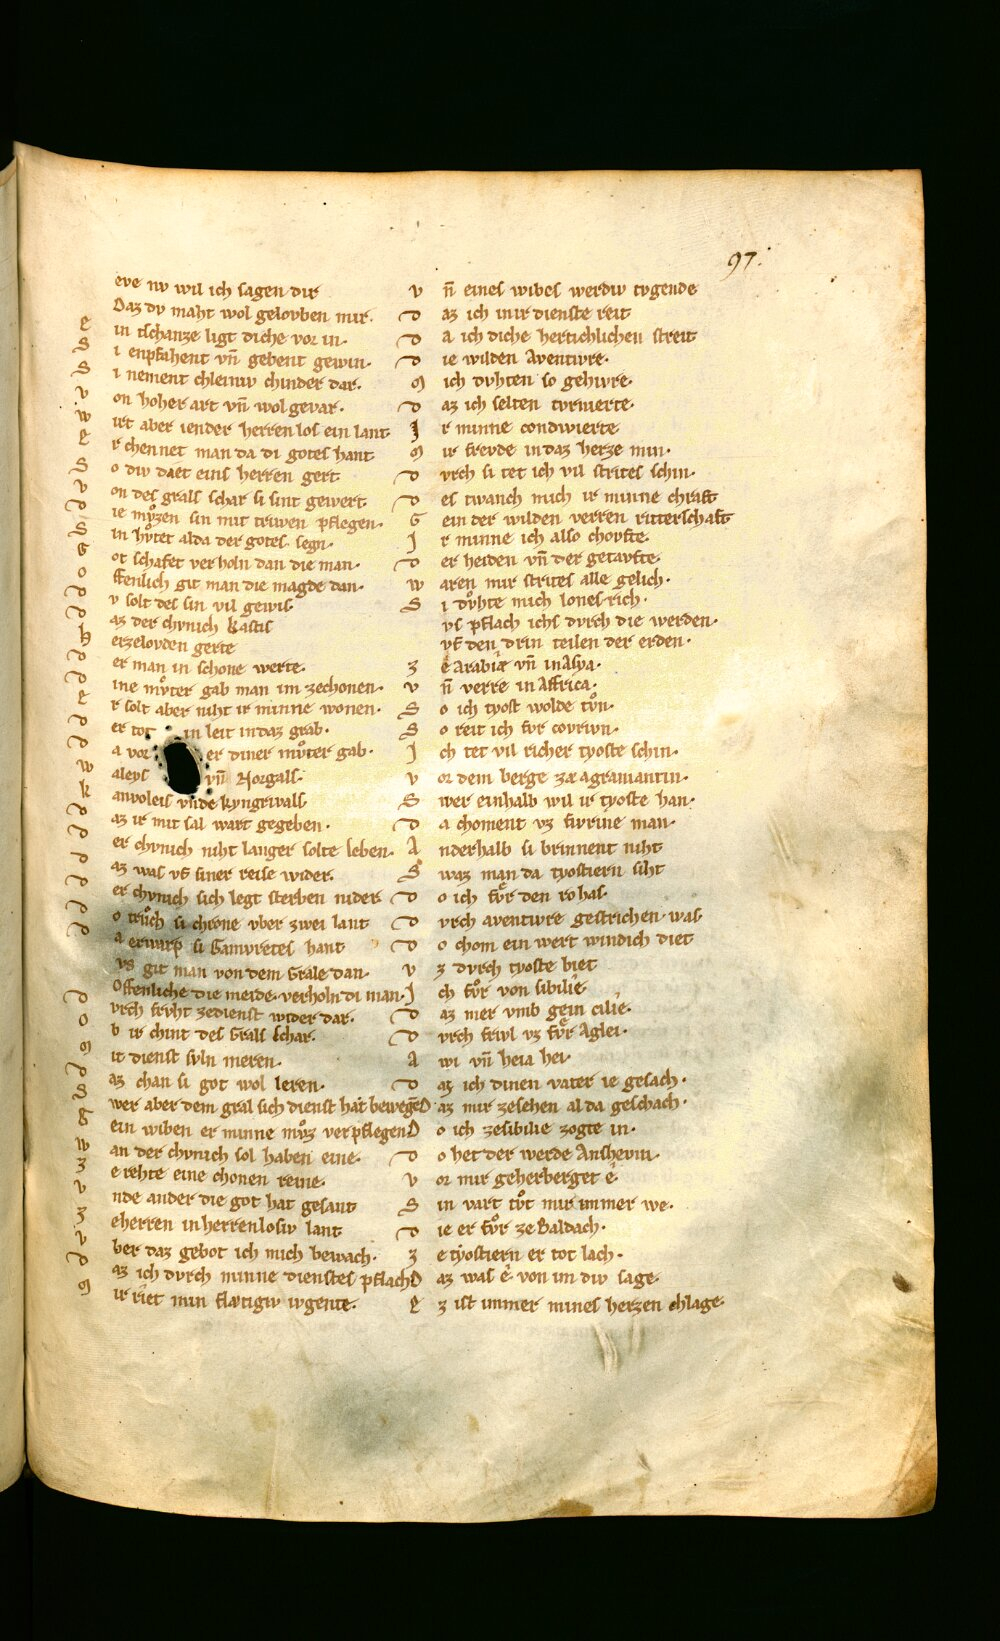 eve nv wil ich sagen dir
Daz dv maht wol gelovben mir.
e in tschanze ligt diche vor in.
S i enpfahent vn̄ gebent gewin.
S i nement chleiniv chinder dar.
v on hoher art vn̄ wol gevar.
w irt aber iender herren los ein lant
E r chennet man da di gotes hant
S o div diet eins herren gert
v on des grals schar si sint gewert
D ie mvͦzen sin mit triwen pflegen.
S in hvͦtet alda der gotes segn.
G ot schafet ver holn dan die man.
O ffenlich git man die magde dan.
D v solt des sin vil gewis.
D az der chvnich kastis
H erzeloyden gerte
D er man in schone werte.
D ine mvͦter gab man im zechonen.
E r solt aber niht ir minne wonen.
D er tot in leit in daz grab.
D a vor er diner mvͦter gab.
W aleys vn̄ Norgals.
K anvoleis vnde kyngrivals
D az ir mit sal wart gegeben.
D er chvnich niht langer solte leben.
D az was vf siner reise wider.
D er chvnich sich legt sterben nider
D o trvͦch si chrone vber zwei lant
D a erwarp si Gamvretes hant
vs git man von dem Grale dan.
Offenliche die meide. verholn di man.
D vrch frvht zedienst wider dar.
O b ir chint des Grals schar.
M it dienst svln meren.
D az chan si got wol leren.
S wer aber dem gral sich dienst hat bewegē
G ein wiben er minne mvͦz verpflegen
W an der chvnich sol haben eine.
Z e rehte eine chonen reine.
V nde ander die got hat gesant
Z eherren in herrenlosiv lant
V ber daz gebot ich mich bewach.
D az ich dvrch minne dienstes pflach
M ir riet min flætigiv ivgente.
v n̄ eines wibes werdiv tvgende
D az ich in ir dienste reit
D a ich diche hertichlichen streit
D ie wilden Aventivre.
M ich dvhten so gehivre.
D az ich selten tvrnierte.
I r minne condwierte
M ir frevde in daz herze min.
D vrch si tet ich vil strites schin.
D es twanch mich ir minne chraft
G ein der wilden verren ritterschaft
I r minne ich also chovfte.
D er heiden vn̄ der getavfte.
W aren mir strites alle gelich.
S i dvͦhte mich lones rich.
vs pflach ichs dvrch die werden.
vf den drin teilen der erden.
Z e Arabiæ vn̄ in Asya.
V n̄ verre in Affrica.
S o ich tyost wolde tvͦn.
S o reit ich fvr covriwn.
I ch tet vil richer tyoste schin.
V or dem berge ze agramantin.
S wer einhalb wil ir tyoste han.
D a choment vz fivrine man.
A nderhalb si brinnent niht
S waz man da tyostiern siht
D o ich fvͦr den rohas.
D vrch aventivre gestrichen was
D o chom ein wert windich diet
V z dvrch tyoste biet
I ch fvͦr von sibilie
D az mer vmb gein cilie.
D vrch frivl vz fvͦr Aglei.
A wi vn̄ heia hei
D az ich dinen vater ie gesach.
D az mir zesehen al da geschach.
D o ich zesibilie zogte in.
D o het der werde Anshevin.
V or mir geherberget e.
S in vart tvͦt mir immer we.
D ie er fvͦr ze Baldach.
Z e tyostiern er tot lach.
D az was e von im div sage.
E z ist immer mines herzen chlage.
97.